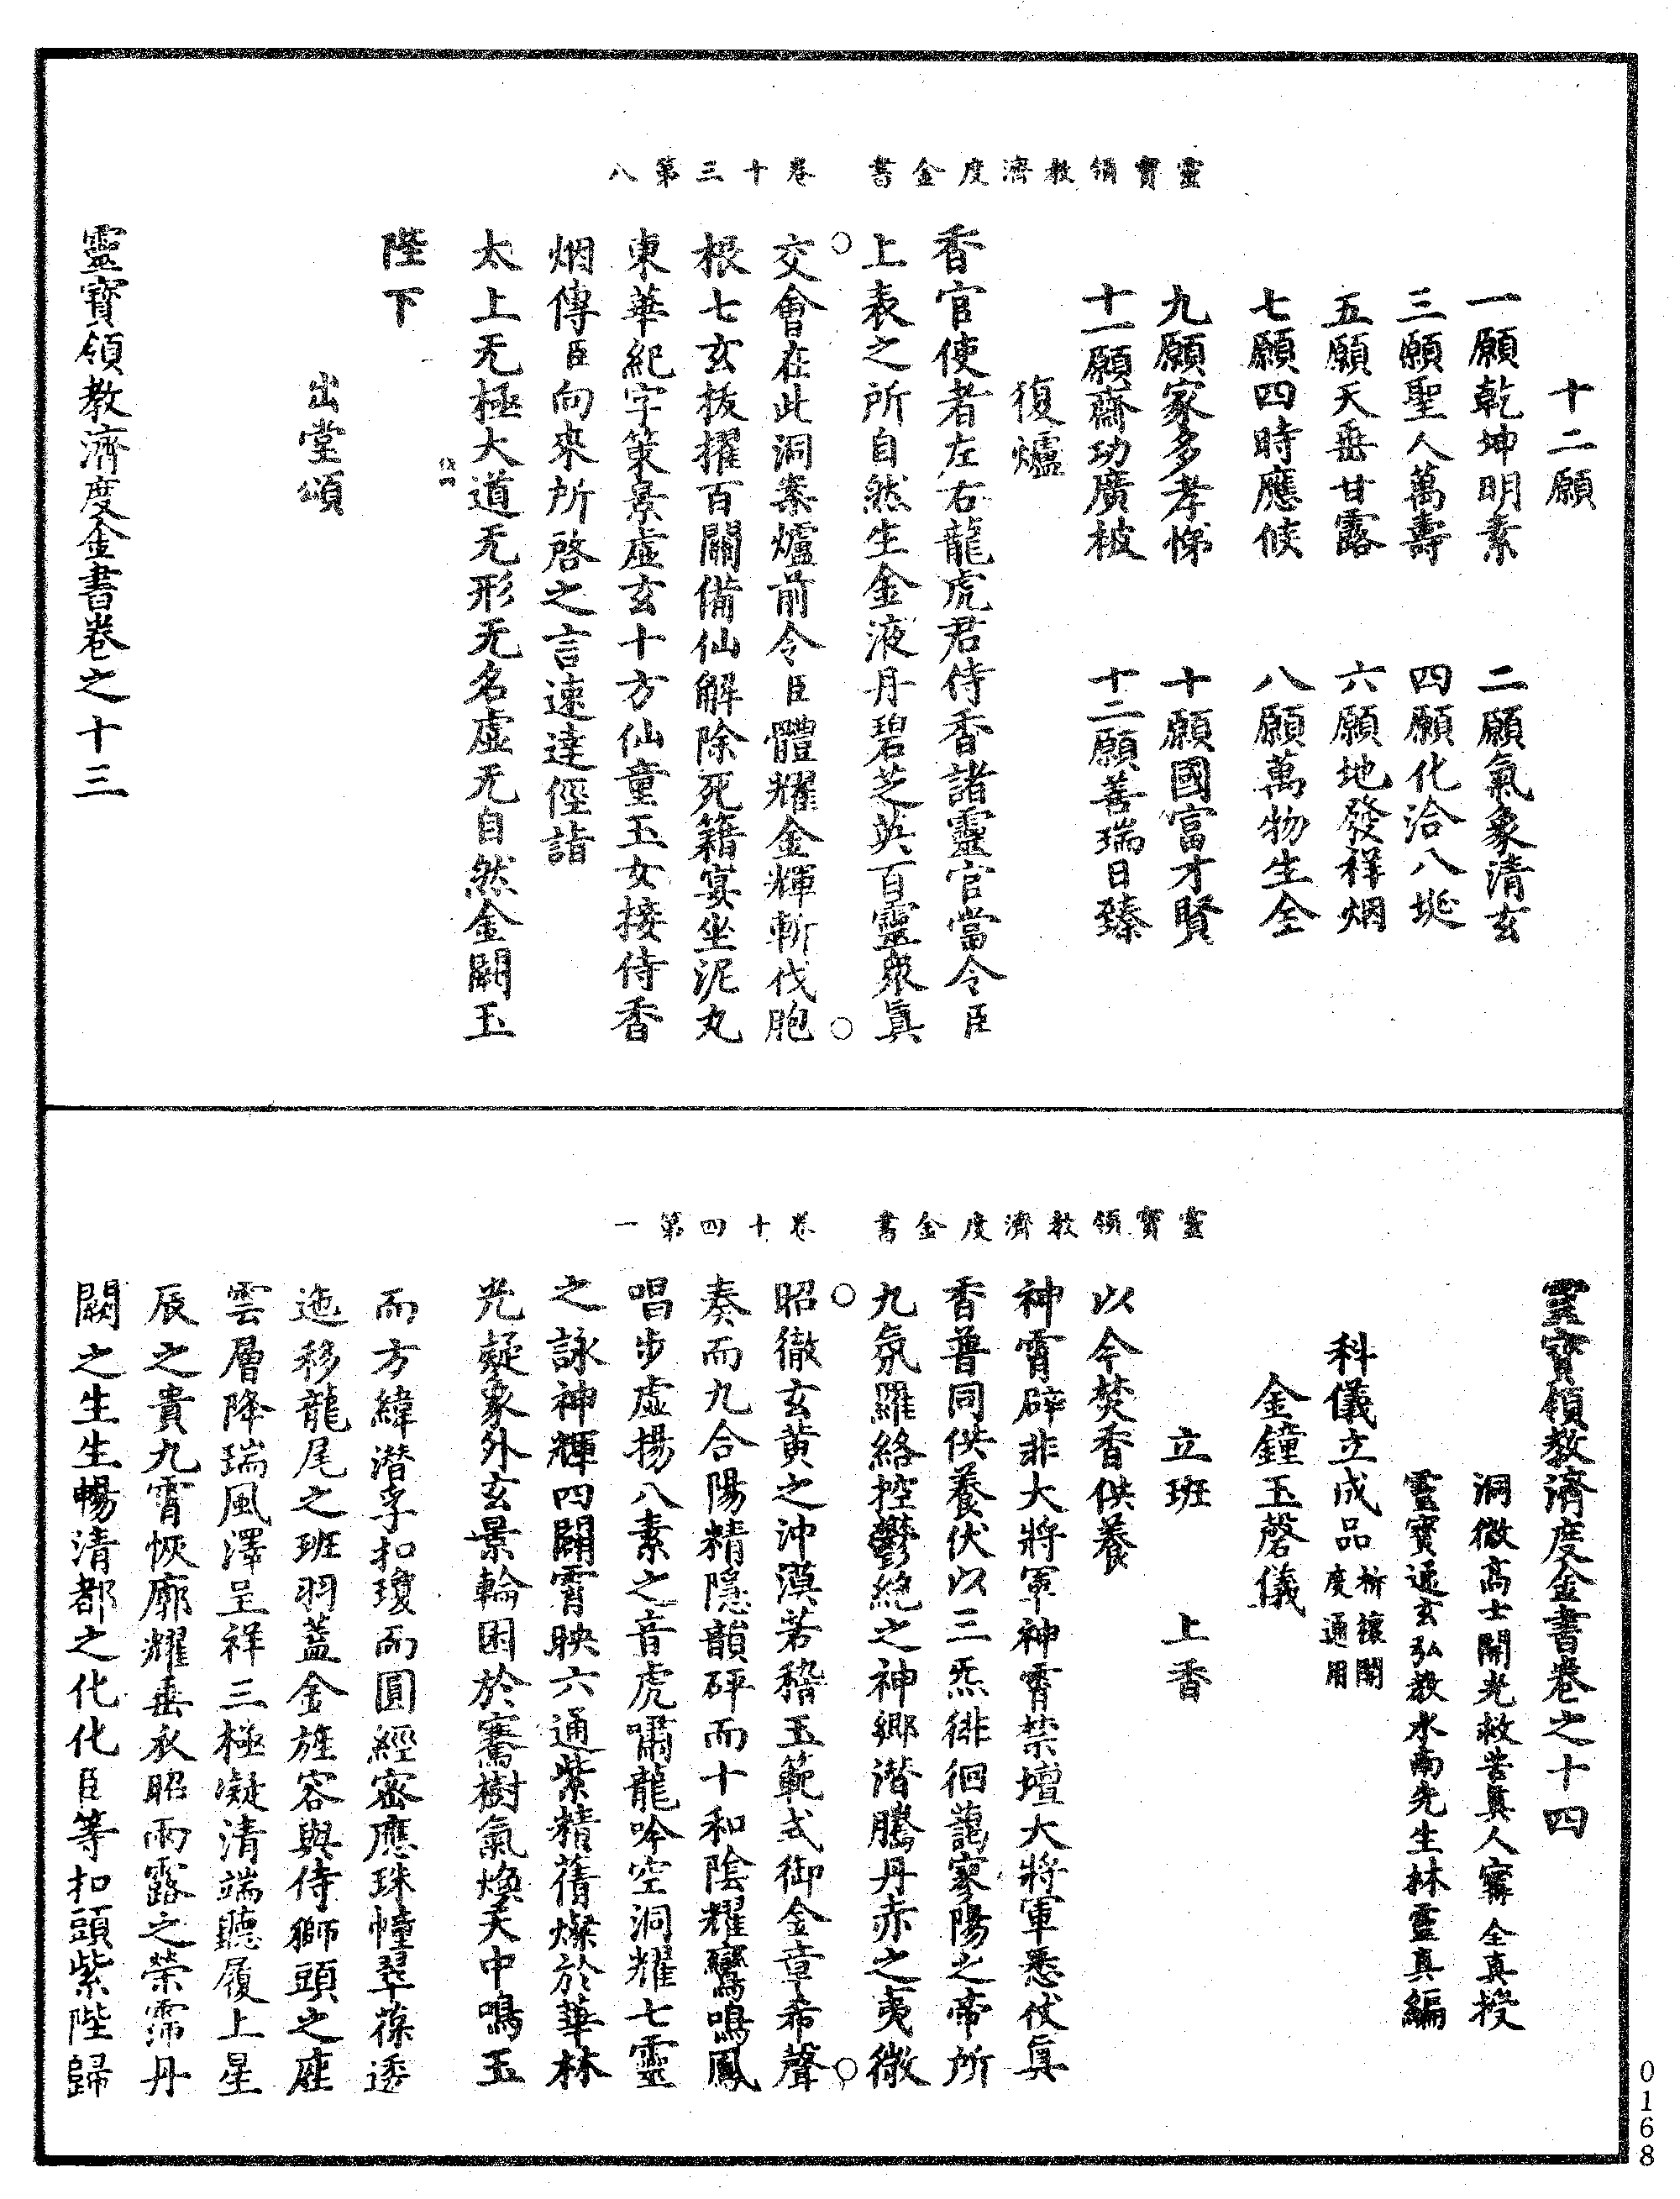 靈寶領教濟度金書 卷十三第八
十二願
一願乾坤明素 二願氣象清玄
三願聖人萬壽 四願化洽八埏
五願天垂甘露 六願地發祥烟
七願四時應候 八願萬物生全
九願家多孝悌 十願國富才賢
十一願齋功廣被 十二願善瑞日臻
復爐
香官使者左右龍虎君侍香諸靈官當令臣
上表之所自然生金液丹碧芝英百靈衆眞
交會在此洞案爐前令臣體耀金輝斬伐胞
根七玄拔擢百關備仙解除死籍寞坐泥丸
東華紀字策景虛玄十方仙童玉女接侍香
烟傳臣向來所啓之言速達徑詣
太上无極大道无形无名虛无自然金闕玉
陛下
出堂頌
靈寶領教濟度金書卷之十三
靈寶領教濟度金書 卷十四第一
靈寶領教濟度金書卷之十四
洞微高士開光救苦眞人寗全真授
靈寶通玄弘教水南先生林靈真編
科儀立成品 祈禳開度通用
金鐘玉磬儀
立班 上香
以今焚香供養
神霄辟非大將軍神霄禁壇大將軍悉仗眞
香普同供養伏以三炁徘徊藹寥陽之帝所
九氛羅絡控鬱絶之神鄉潛騰丹赤之夷微
昭徹玄黄之沖漠若稽玉範式御金章希聲
奏而九合陽精隱韻砰而十和陰耀鸞鳴鳳
唱步虛揚八素之音虎嘯龍吟空洞耀七靈
之詠神輝四闢霄映六通紫精蒨燦於華林
光凝象外玄景輪囷於騫樹氣煥天中鳴玉
而方緯潛孚扣瓊而圓經密應珠幢翠葆透
迤移龍尾之班羽蓋金旌容與侍獅頭之座
雲層降瑞風澤呈祥三極凝清端聽履上星
辰之貴九霄恢廓耀垂衣昭雨露之榮霈丹
闕之生生暢清都之化化臣等扣頭紫陛歸
0168